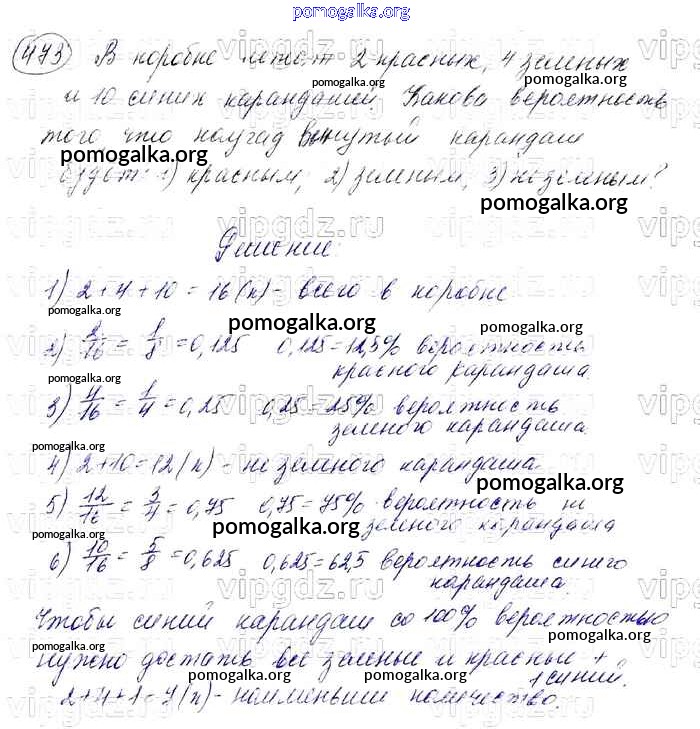 pomogalka.org
473 В коробке лежат 2 красных, 4 зеленых
pomogalka.org pomogalka.org
и 10 синих карандашей. Какова вероятность
того, что наугад вынутый карандаш
pomogalka.org pomogalka.org
будет: 1) красным, 2) зеленым, 3) не зеленым?
pomogalka.org
vipgdz.ru
Решение:
1) 2+4+10=16(к) - всего в коробке
pomogalka.org pomogalka.org
pomogalka.org pomogalka.org
2) 2/16 = 1/8 = 0,125 0,125=12,5% вероятность
красного карандаша.
pomogalka.org
3) 4/16 = 1/4 = 0,25 0,25=25% вероятность
зеленого карандаша.
pomogalka.org
4) 2+10=12(к) - не зеленого карандаша
pomogalka.org
5) 12/16 = 3/4 = 0,75 0,75=75% вероятность не
зеленого карандаша
pomogalka.org
6) 10/16 = 5/8 = 0,625 0,625=62,5 вероятность синего
карандаша.
pomogalka.org
Чтобы синий карандаш со 100% вероятностью
pomogalka.org pomogalka.org
нужно достать все зеленые и красные +
1 синий.
pomogalka.org
2+4+1=7(к) - наименьшее количество.
pomogalka.org pomogalka.org